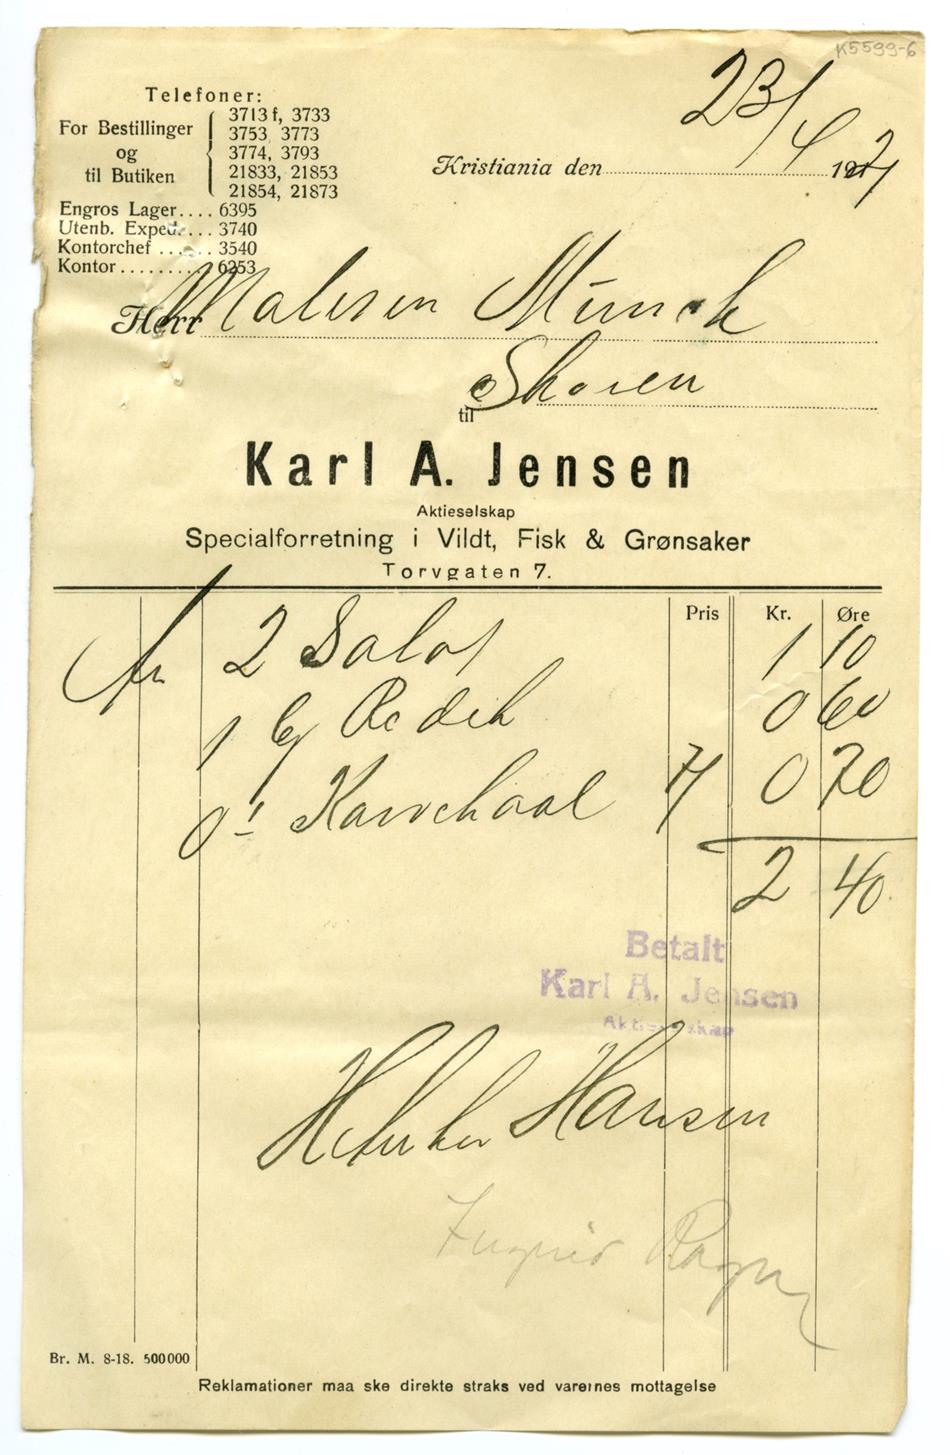 K5599-6
Telefoner:
For Bestillinger og til Butiken
3713 f, 3733
3753, 3773
3774, 3793
21833, 21853
21854, 21873
Engros Lager.... 6395
Utenb. Exped.... 3740
Kontorchef ...... 3540
Kontor......... 6253
Kristiania den 23/4 192
Herr Maleren Munck
Skoien
til
Karl A. Jensen
Aktieselskap
Specialforretning i Vildt, Fisk & Grønsaker
Torvgaten 7.
Pris Kr. Øre
2 Salat 1 10
1 Redik 0 60
0¹ Karvekaal 7 0 70
2 40
Betalt
Karl A. Jensen
Aktieselskap
Hansen
Br. M. 8-18. 500000
Reklamationer maa ske direkte straks ved varernes mottagelse